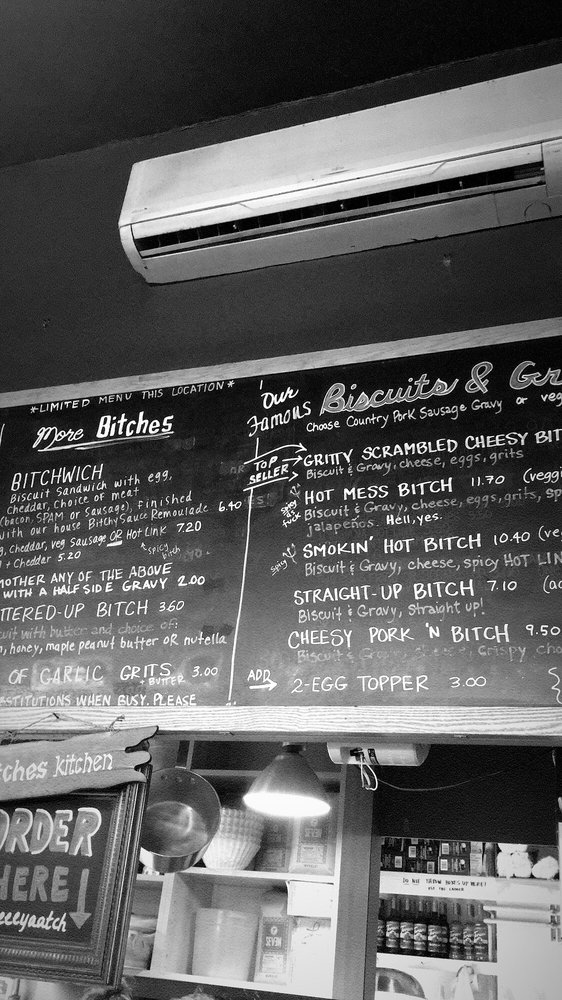 *LIMITED MENU THIS LOCATION*
More Bitches
BITCHWICH
Biscuit Sandwich with egg,
Cheddar, choice of meat
(bacon, SPAM or Sausage), Finished
with our house BitchySauce Remoulade 6.40
g, Cheddar, veg Sausage OR Hot Link 7.20
+ Cheddar 5.20
spicy bitch
MOTHER ANY OF THE ABOVE
WITH A HALF SIDE GRAVY 2.00
TTERED-UP BITCH 3.60
cuit with butter and choice of:
, honey, maple peanut butter OR nutella
OF GARLIC GRITS 3.00
+ BUTTER
BSTITUTIONS WHEN BUSY. PLEASE
Our
Famous Biscuits & Gr
Choose Country Pork Sausage Gravy or veg
TOP
SELLER
GRITTY SCRAMBLED CHEESY BIT
Biscuit & Gravy, cheese, eggs, grits
spicy as fuck
HOT MESS BITCH 11.70 (veggi
Biscuit & Gravy, cheese, eggs, grits, sp
jalapeños. Hell, yes.
spicy
SMOKIN' HOT BITCH 10.40 (ve
Biscuit & Gravy, cheese, spicy HOT LIN
STRAIGHT-UP BITCH 7.10 (ad
Biscuit & Gravy, Straight up!
CHEESY PORK 'N BITCH 9.50
Biscuit & Gravy, cheese, crispy cho
ADD
2-EGG TOPPER 3.00
tches kitchen
ORDER
HERE
eeeyaatch